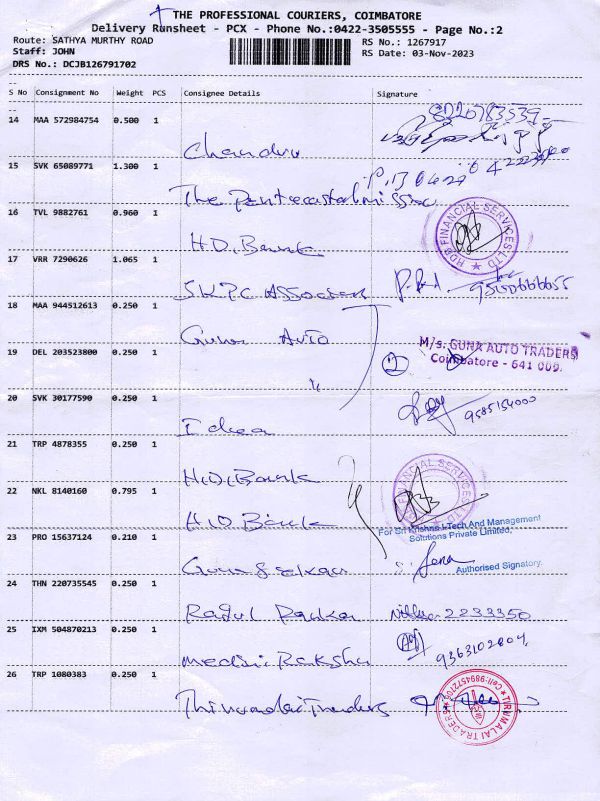 THE PROFESSIONAL COURIERS, COIMBATORE
Delivery Runsheet - PCX - Phone No.:0422-3505555 - Page No.:2
Route: SATHYA MURTHY ROAD RS No.: 1267917
Staff: JOHN RS Date: 03-Nov-2023
DRS No.: DCJB126791702
S No Consignment No Weight PCS Consignee Details Signature
14 MAA 572984754 0.500 1
8220783539
Chandru
15 SVK 65089771 1.300 1
The Pentecostal mission
16 TVL 9882761 0.960 1
H.D. Bank
HDB FINANCIAL SERVICES LTD
17 VRR 7290626 1.065 1
SKPC Associates 9500666655
18 MAA 944512613 0.250 1
Guna Auto
M/s. GUNA AUTO TRADERS
19 DEL 203523800 0.250 1
Coimbatore - 641 009.
"
20 SVK 30177590 0.250 1
9585154000
Idea
21 TRP 4878355 0.250 1
H.D. Bank
FINANCIAL SERVICES LTD
22 NKL 8140160 0.795 1
H.D Bank
For Sri Krishna I-Tech And Management
Solutions Private Limited,
23 PRO 15637124 0.210 1
Authorised Signatory.
Guna Sekar
24 THN 220735545 0.250 1
2233350
25 IXM 504870213 0.250 1
9363102804
Medsi Raksha
26 TRP 1080383 0.250 1
Thirumalai Traders
TIRUMALAI TRADERS